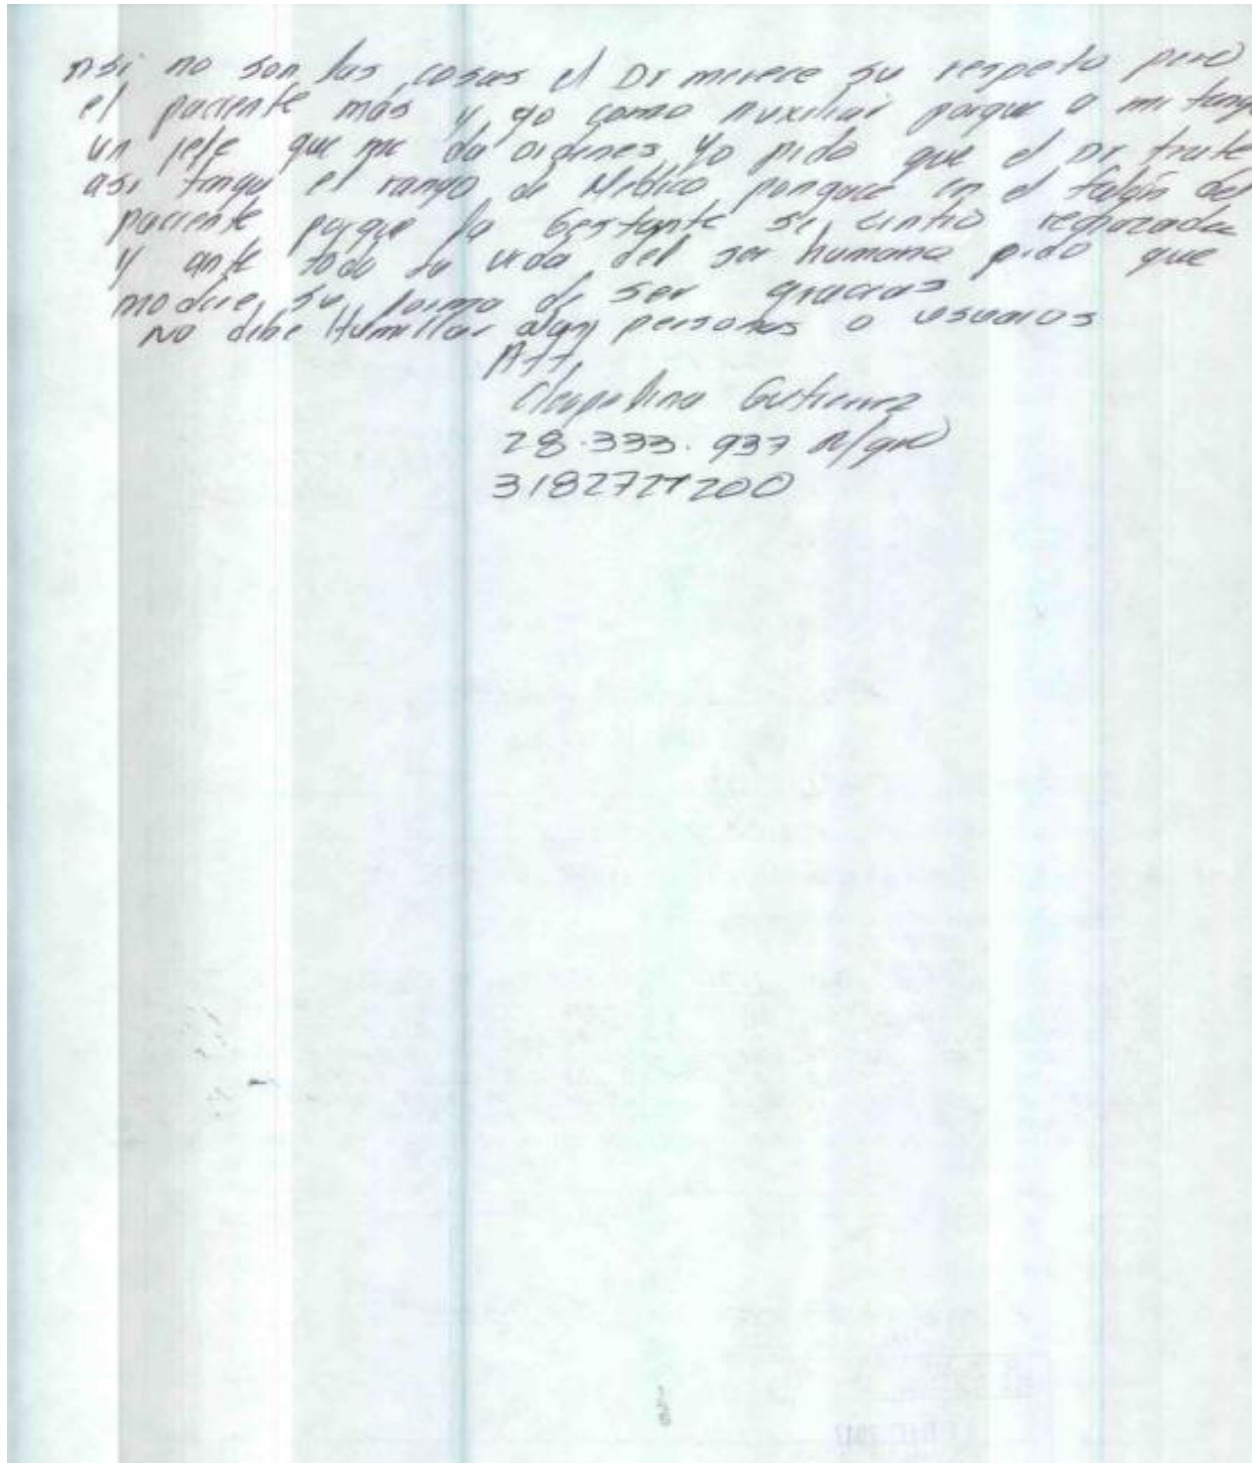 Asi no son las cosas el Dr merece su respeto pero
el paciente más y yo como Auxiliar porque a mi tengo
un jefe que me da ordenes yo pido que el Dr trate
asi tenga el rango de Médico pongace en el talón del
paciente porque la Gestante se cintio rechazada
y ante todo la vida del ser humano pido que
modere su forma de ser gracias
No debe Humillar personas o usuarios
Att,
Gutierrez
28.333.937
3182727200
2012